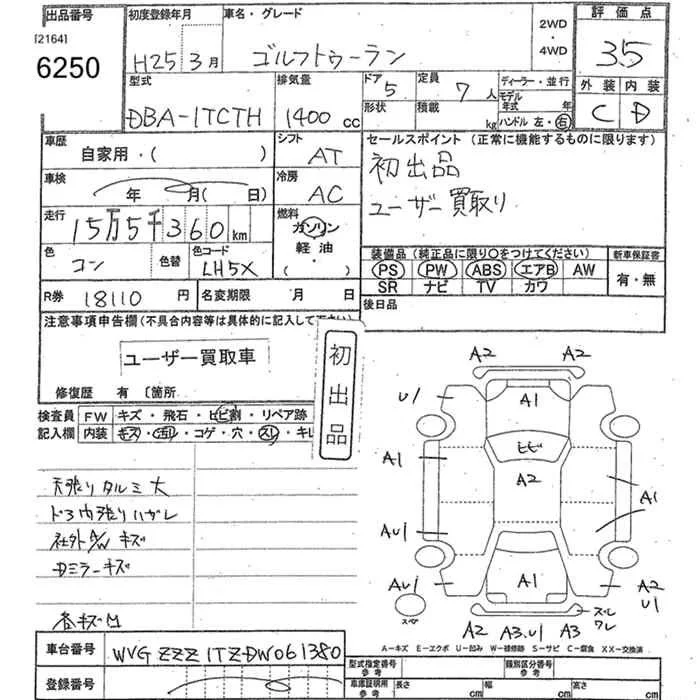 出品番号
[2164]
6250
初度登録年月
H25 3月
車名・グレード
ゴルフトゥーラン
2WD
・
4WD
評価点
3.5
外装 内装
C D
型式
DBA-1TCTH
排気量
1400 cc
ドア
5
形状
定員
7人
積載
kg
ディーラー・並行
モデル年式 年
ハンドル 左・右
車歴
自家用・( )
シフト
AT
セールスポイント (正常に機能するものに限ります)
初出品
ユーザー買取り
車検
年 月( 日)
冷房
AC
走行
15万5千360km
燃料
ガソリン
軽油・
色
コン
色替
色コード
LH5X
装備品 (純正品に限り○をつけてください)
PS PW ABS エアB AW
SR ナビ TV カワ
新車保証書
有・無
R券
18110 円
名変期限 月 日
後日品
注意事項申告欄(不具合内容等は具体的に記入して下さい)
ユーザー買取車
初出品
修復歴 有 〔箇所
検査員記入欄
FW キズ・飛石・ヒビ割・リペア跡
内装 キズ・汚れ・コゲ・穴・スレ・キレ
天張りタルミ大
ドア内張りハガレ
社外A/Wキズ
Dミラーキズ
各キズ凹
A2 A2
U1 A1
ヒビ
A1 A2 A1
AU1
AU1 A1 A2
U1
スペア
A2 A3.U1 A3
ズレ
ワレ
A-キズ E-エクボ U-凹み W-補修跡 S-サビ C-腐食 XX-交換済
車台番号
WVGZZZ1TZDW061380
登録番号
型式指定番号
参考
類別区分番号
参考
車庫証明用
参考
長さ cm 幅 cm 高さ cm